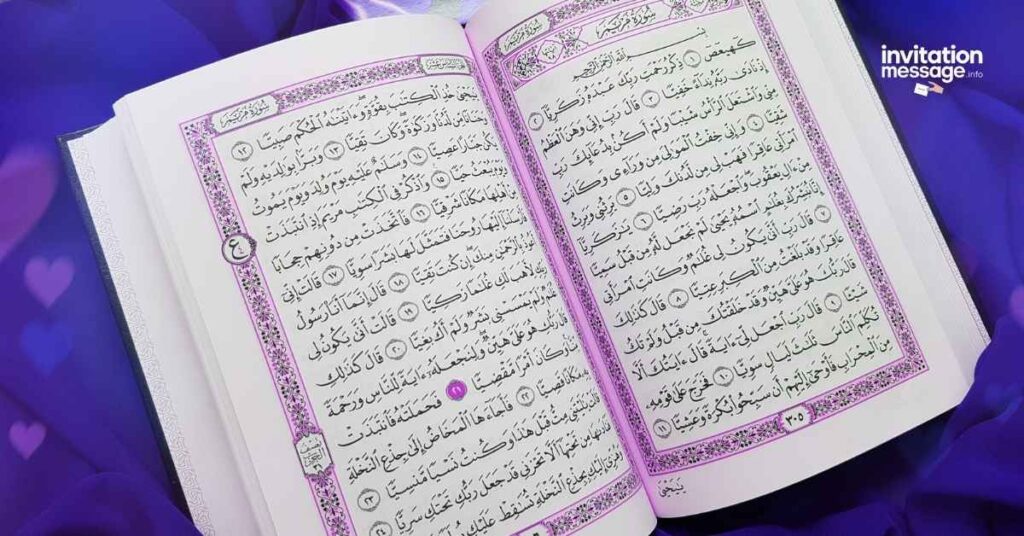 سُورَةُ مَرْيَمَ
سُورَةُ مَرْيَمَ
بِسْمِ ٱللَّهِ ٱلرَّحْمَٰنِ ٱلرَّحِيمِ
كٓهيعٓصٓ ١ ذِكْرُ رَحْمَتِ رَبِّكَ عَبْدَهُۥ زَكَرِيَّآ ٢
إِذْ نَادَىٰ رَبَّهُۥ نِدَآءً خَفِيًّا ٣ قَالَ رَبِّ إِنِّى وَهَنَ ٱلْعَظْمُ
مِنِّى وَٱشْتَعَلَ ٱلرَّأْسُ شَيْبًا وَلَمْ أَكُنۢ بِدُعَآئِكَ رَبِّ
شَقِيًّا ٤ وَإِنِّى خِفْتُ ٱلْمَوَٰلِىَ مِن وَرَآءِى وَكَانَتِ
ٱمْرَأَتِى عَاقِرًا فَهَبْ لِى مِن لَّدُنكَ وَلِيًّا ٥ يَرِثُنِى وَيَرِثُ
مِنْ ءَالِ يَعْقُوبَ وَٱجْعَلْهُ رَبِّ رَضِيًّا ٦ يَٰزَكَرِيَّآ
إِنَّا نُبَشِّرُكَ بِغُلَٰمٍ ٱسْمُهُۥ يَحْيَىٰ لَمْ نَجْعَل لَّهُۥ مِن قَبْلُ سَمِيًّا ٧
قَالَ رَبِّ أَنَّىٰ يَكُونُ لِى غُلَٰمٌ وَكَانَتِ ٱمْرَأَتِى
عَاقِرًا وَقَدْ بَلَغْتُ مِنَ ٱلْكِبَرِ عِتِيًّا ٨ قَالَ كَذَٰلِكَ
قَالَ رَبُّكَ هُوَ عَلَىَّ هَيِّنٌ وَقَدْ خَلَقْتُكَ مِن قَبْلُ وَلَمْ تَكُ
شَيْـًٔا ٩ قَالَ رَبِّ ٱجْعَل لِّىٓ ءَايَةً قَالَ ءَايَتُكَ أَلَّا
تُكَلِّمَ ٱلنَّاسَ ثَلَٰثَ لَيَالٍ سَوِيًّا ١٠ فَخَرَجَ عَلَىٰ قَوْمِهِۦ
مِنَ ٱلْمِحْرَابِ فَأَوْحَىٰٓ إِلَيْهِمْ أَن سَبِّحُوا۟ بُكْرَةً وَعَشِيًّا ١١
٣٠٥
يَٰيَحْيَىٰ
سُورَةُ مَرْيَمَ
يَٰيَحْيَىٰ خُذِ ٱلْكِتَٰبَ بِقُوَّةٍ وَءَاتَيْنَٰهُ ٱلْحُكْمَ صَبِيًّا ١٢
وَحَنَانًا مِّن لَّدُنَّا وَزَكَوٰةً وَكَانَ تَقِيًّا ١٣ وَبَرًّۢا بِوَٰلِدَيْهِ وَلَمْ
يَكُن جَبَّارًا عَصِيًّا ١٤ وَسَلَٰمٌ عَلَيْهِ يَوْمَ وُلِدَ وَيَوْمَ يَمُوتُ
وَيَوْمَ يُبْعَثُ حَيًّا ١٥ وَٱذْكُرْ فِى ٱلْكِتَٰبِ مَرْيَمَ إِذِ ٱنتَبَذَتْ
مِنْ أَهْلِهَا مَكَانًا شَرْقِيًّا ١٦ فَٱتَّخَذَتْ مِن دُونِهِمْ حِجَابًا
فَأَرْسَلْنَآ إِلَيْهَا رُوحَنَا فَتَمَثَّلَ لَهَا بَشَرًا سَوِيًّا ١٧ قَالَتْ إِنِّىٓ
أَعُوذُ بِٱلرَّحْمَٰنِ مِنكَ إِن كُنتَ تَقِيًّا ١٨ قَالَ إِنَّمَآ أَنَا۠ رَسُولُ
رَبِّكِ لِأَهَبَ لَكِ غُلَٰمًا زَكِيًّا ١٩ قَالَتْ أَنَّىٰ يَكُونُ لِى
غُلَٰمٌ وَلَمْ يَمْسَسْنِى بَشَرٌ وَلَمْ أَكُ بَغِيًّا ٢٠ قَالَ كَذَٰلِكِ
قَالَ رَبُّكِ هُوَ عَلَىَّ هَيِّنٌ وَلِنَجْعَلَهُۥٓ ءَايَةً لِّلنَّاسِ وَرَحْمَةً
مِّنَّا وَكَانَ أَمْرًا مَّقْضِيًّا ٢١ فَحَمَلَتْهُ فَٱنتَبَذَتْ
بِهِۦ مَكَانًا قَصِيًّا ٢٢ فَأَجَآءَهَا ٱلْمَخَاضُ إِلَىٰ جِذْعِ ٱلنَّخْلَةِ
قَالَتْ يَٰلَيْتَنِى مِتُّ قَبْلَ هَٰذَا وَكُنتُ نَسْيًا مَّنسِيًّا ٢٣
فَنَادَىٰهَا مِن تَحْتِهَآ أَلَّا تَحْزَنِى قَدْ جَعَلَ رَبُّكِ تَحْتَكِ سَرِيًّا ٢٤
وَهُزِّىٓ إِلَيْكِ بِجِذْعِ ٱلنَّخْلَةِ تُسَٰقِطْ عَلَيْكِ
ع
invitation
message.info